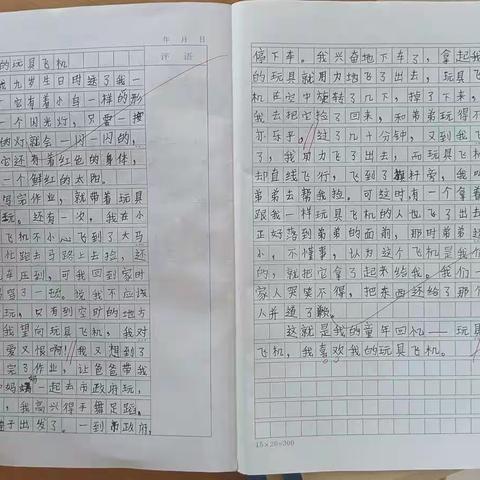 年 月 日
评 语
的玩具飞机
九岁生日时送了我一
它有着小鸟一样的形
一个闪光灯,只要一
的灯就会一闪一闪的,
它还有着红色的身体,
一个鲜红的太阳。
写完作业,就带着玩具
玩。还有一次,我在小
飞机不小心飞到了大马
忙跑去马路上去捡,还
压到,可我回到家时
了一顿。说我不应该
玩,只有到空旷的地方
我望向玩具飞机,我对
爱又恨啊!我又想到了
完了作业,让爸爸带我
妈妈一起去市政府玩,
,我高兴得手舞足蹈。
于出发了。一到市政府,
停下车。我兴奋地下车了,拿起我
的玩具就用力地飞了出去,玩具飞
机在空中旋转了几下,掉了下来,
我去把它捡了回来,和弟弟玩得不
亦乐乎。过了几十分钟,又到我飞
了,我用力飞了出去,而玩具飞
却直线飞行,飞到了
弟弟去帮我捡。可这时有一个拿着
跟我一样玩具飞机的人也飞了出去
正好落到弟弟的面前,那时弟弟还
小,不懂事,认为这个飞机是我们
的,就把它拿了起来给我。我们一
家人哭笑不得,把东西还给了那个
人并道了歉。
这就是我的童年回忆——玩具
飞机,我喜欢我的玩具飞机。
15×20=300